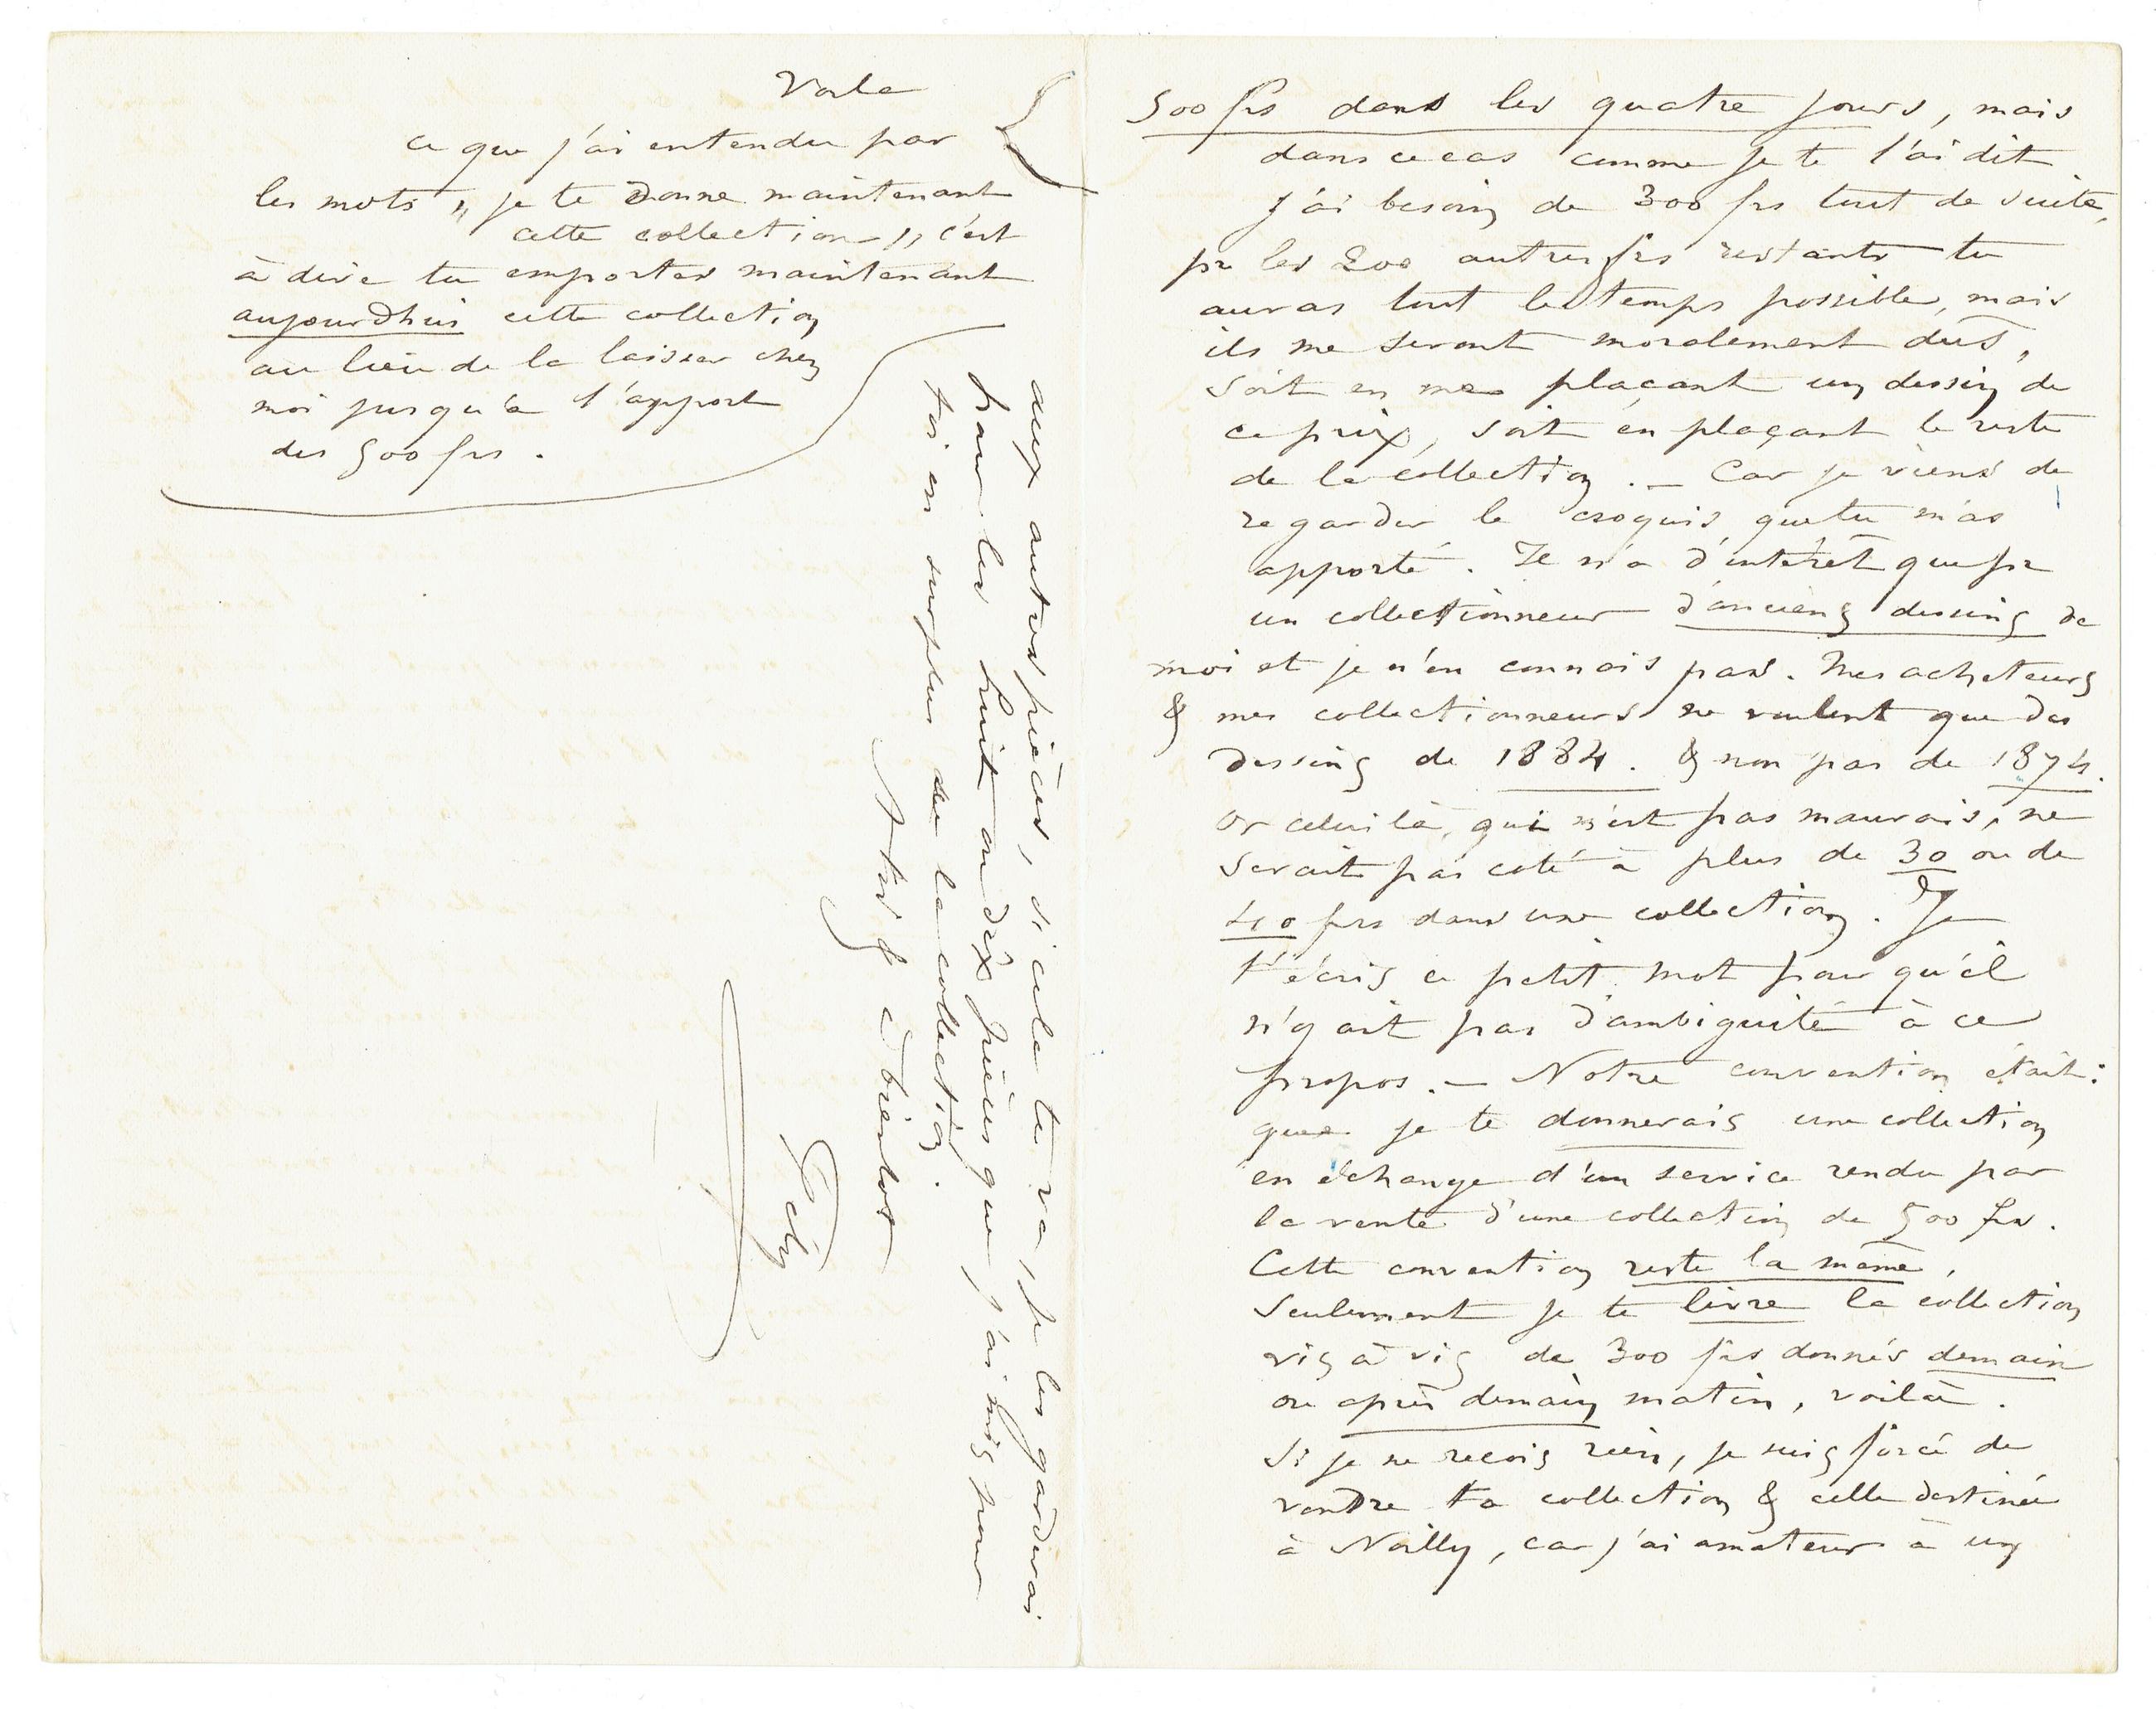 Voila
ce que j'ai entendu par
les mots " je te donne maintenant
cette collection " c'est
à dire tu emportes maintenant
aujourdhui cette collection
au lieu de la laisser chez
moi jusqu'à l'apport
des 500 frs.
500 frs dans les quatre jours, mais
dans ce cas comme je te l'ai dit
j'ai besoin de 300 frs tout de suite,
pr les 200 autres frs restants tu
auras tout le temps possible, mais
ils me seront moralement dûs,
soit en me plaçant un dessin de
ce prix, soit en plaçant le reste
de la collection. — Car je viens de
regarder le croquis que tu m'as
apporté. Il n'a d'intérêt que pr
un collectionneur d'anciens dessins de
moi et je n'en connais pas. Mes acheteurs
& mes collectionneurs ne veulent que des
dessins de 1884. & non pas de 1874.
Or celui là, qui n'est pas mauvais, ne
serait pas coté à plus de 30 ou de
40 frs dans une collection. Je
t'écris ce petit mot pour qu'il
n'y ait pas d'ambiguité à ce
propos. — Notre convention était:
que je te donnerais une collection
en échange d'un service rendu par
la vente d'une collection de 500 frs.
Cette convention reste la même,
seulement je te livre la collection
vis à vis de 300 frs donnés demain
ou après demain matin, voilà.
Si je ne reçois rien, je suis forcé de
vendre ta collection & celle destinée
à Noilly, car j'ai amateur à un
deux autres pièces, si cela te va, je les garderai
pour les huit ou dix pièces que j'ai mis pour
toi en surplus de la collection.
A toi & à bientot